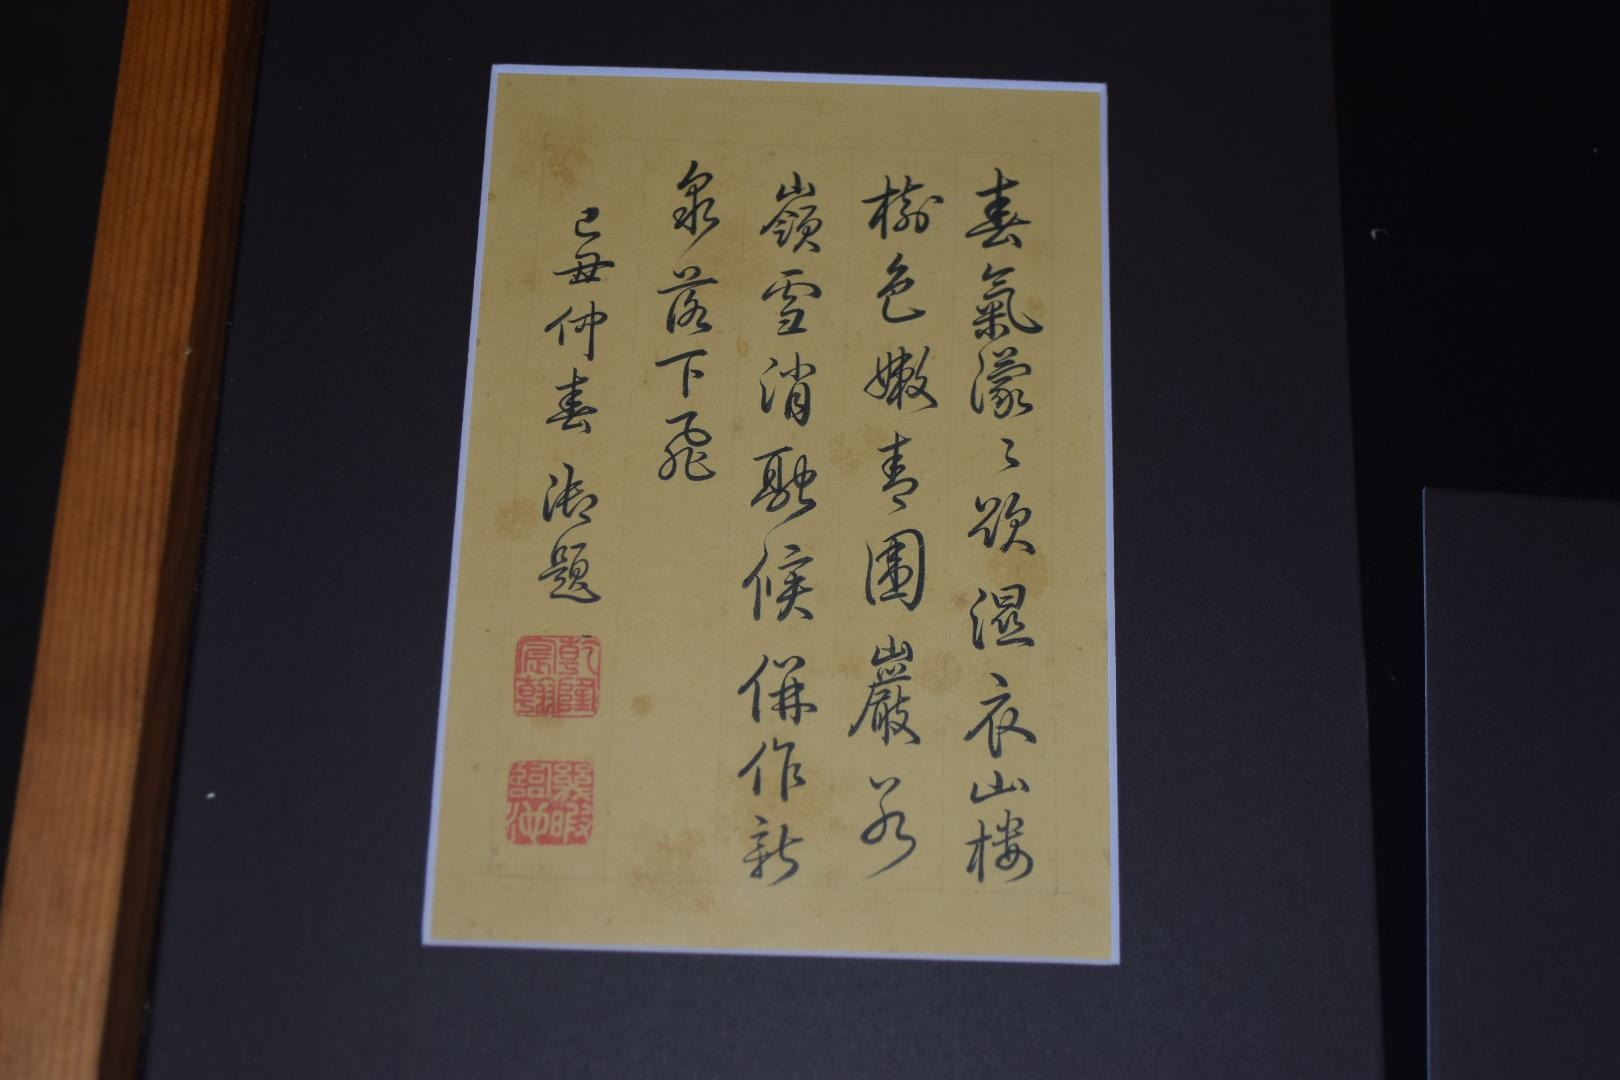 春氣濛〻欲濕衣山樓
樹色嫩青圍巖君
嶺雪消融候併作新
泉落下飛
己丑仲春御題
乾隆宸翰
幾暇臨池